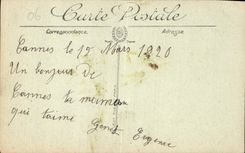 06
Carte Postale
Correspondance
Adresse
Cannes le 12 Mars 1920
Un bonjour de
Cannes ta
qui t'aime
Eugenie